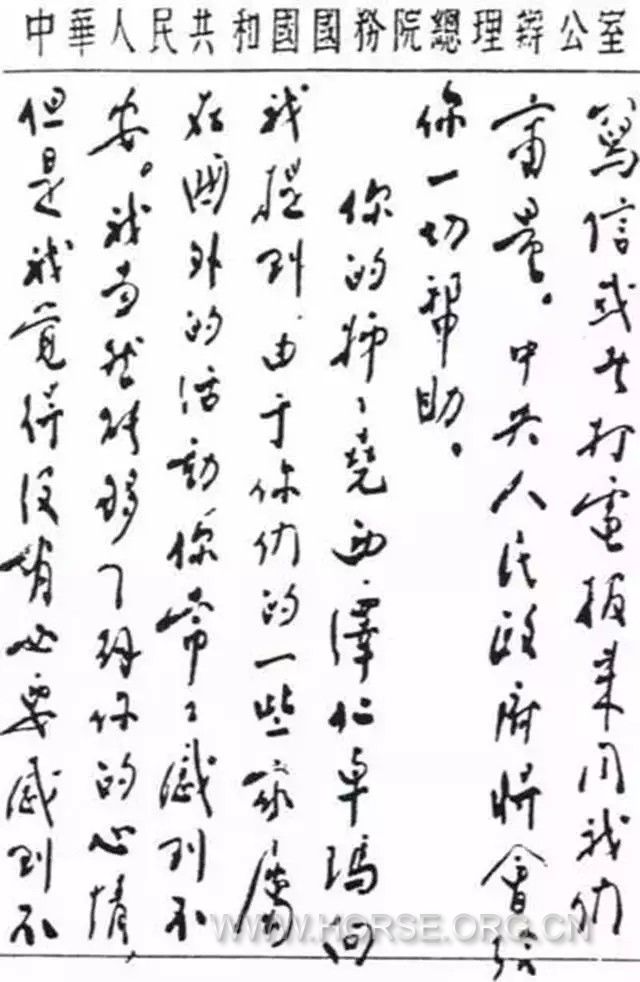 中華人民共和國國務院總理辦公室
寫信或者打電报來同我们
商量。中央人民政府將會給
你一切帮助。
你的姊々堯西澤仁卓瑪向
我提到由于你们的一些家屬
在國外的活動你常々感到不
安。我当然能夠了解你的心情,
但是我覺得没有必要感到不
WWW.HORSE.ORG.CN